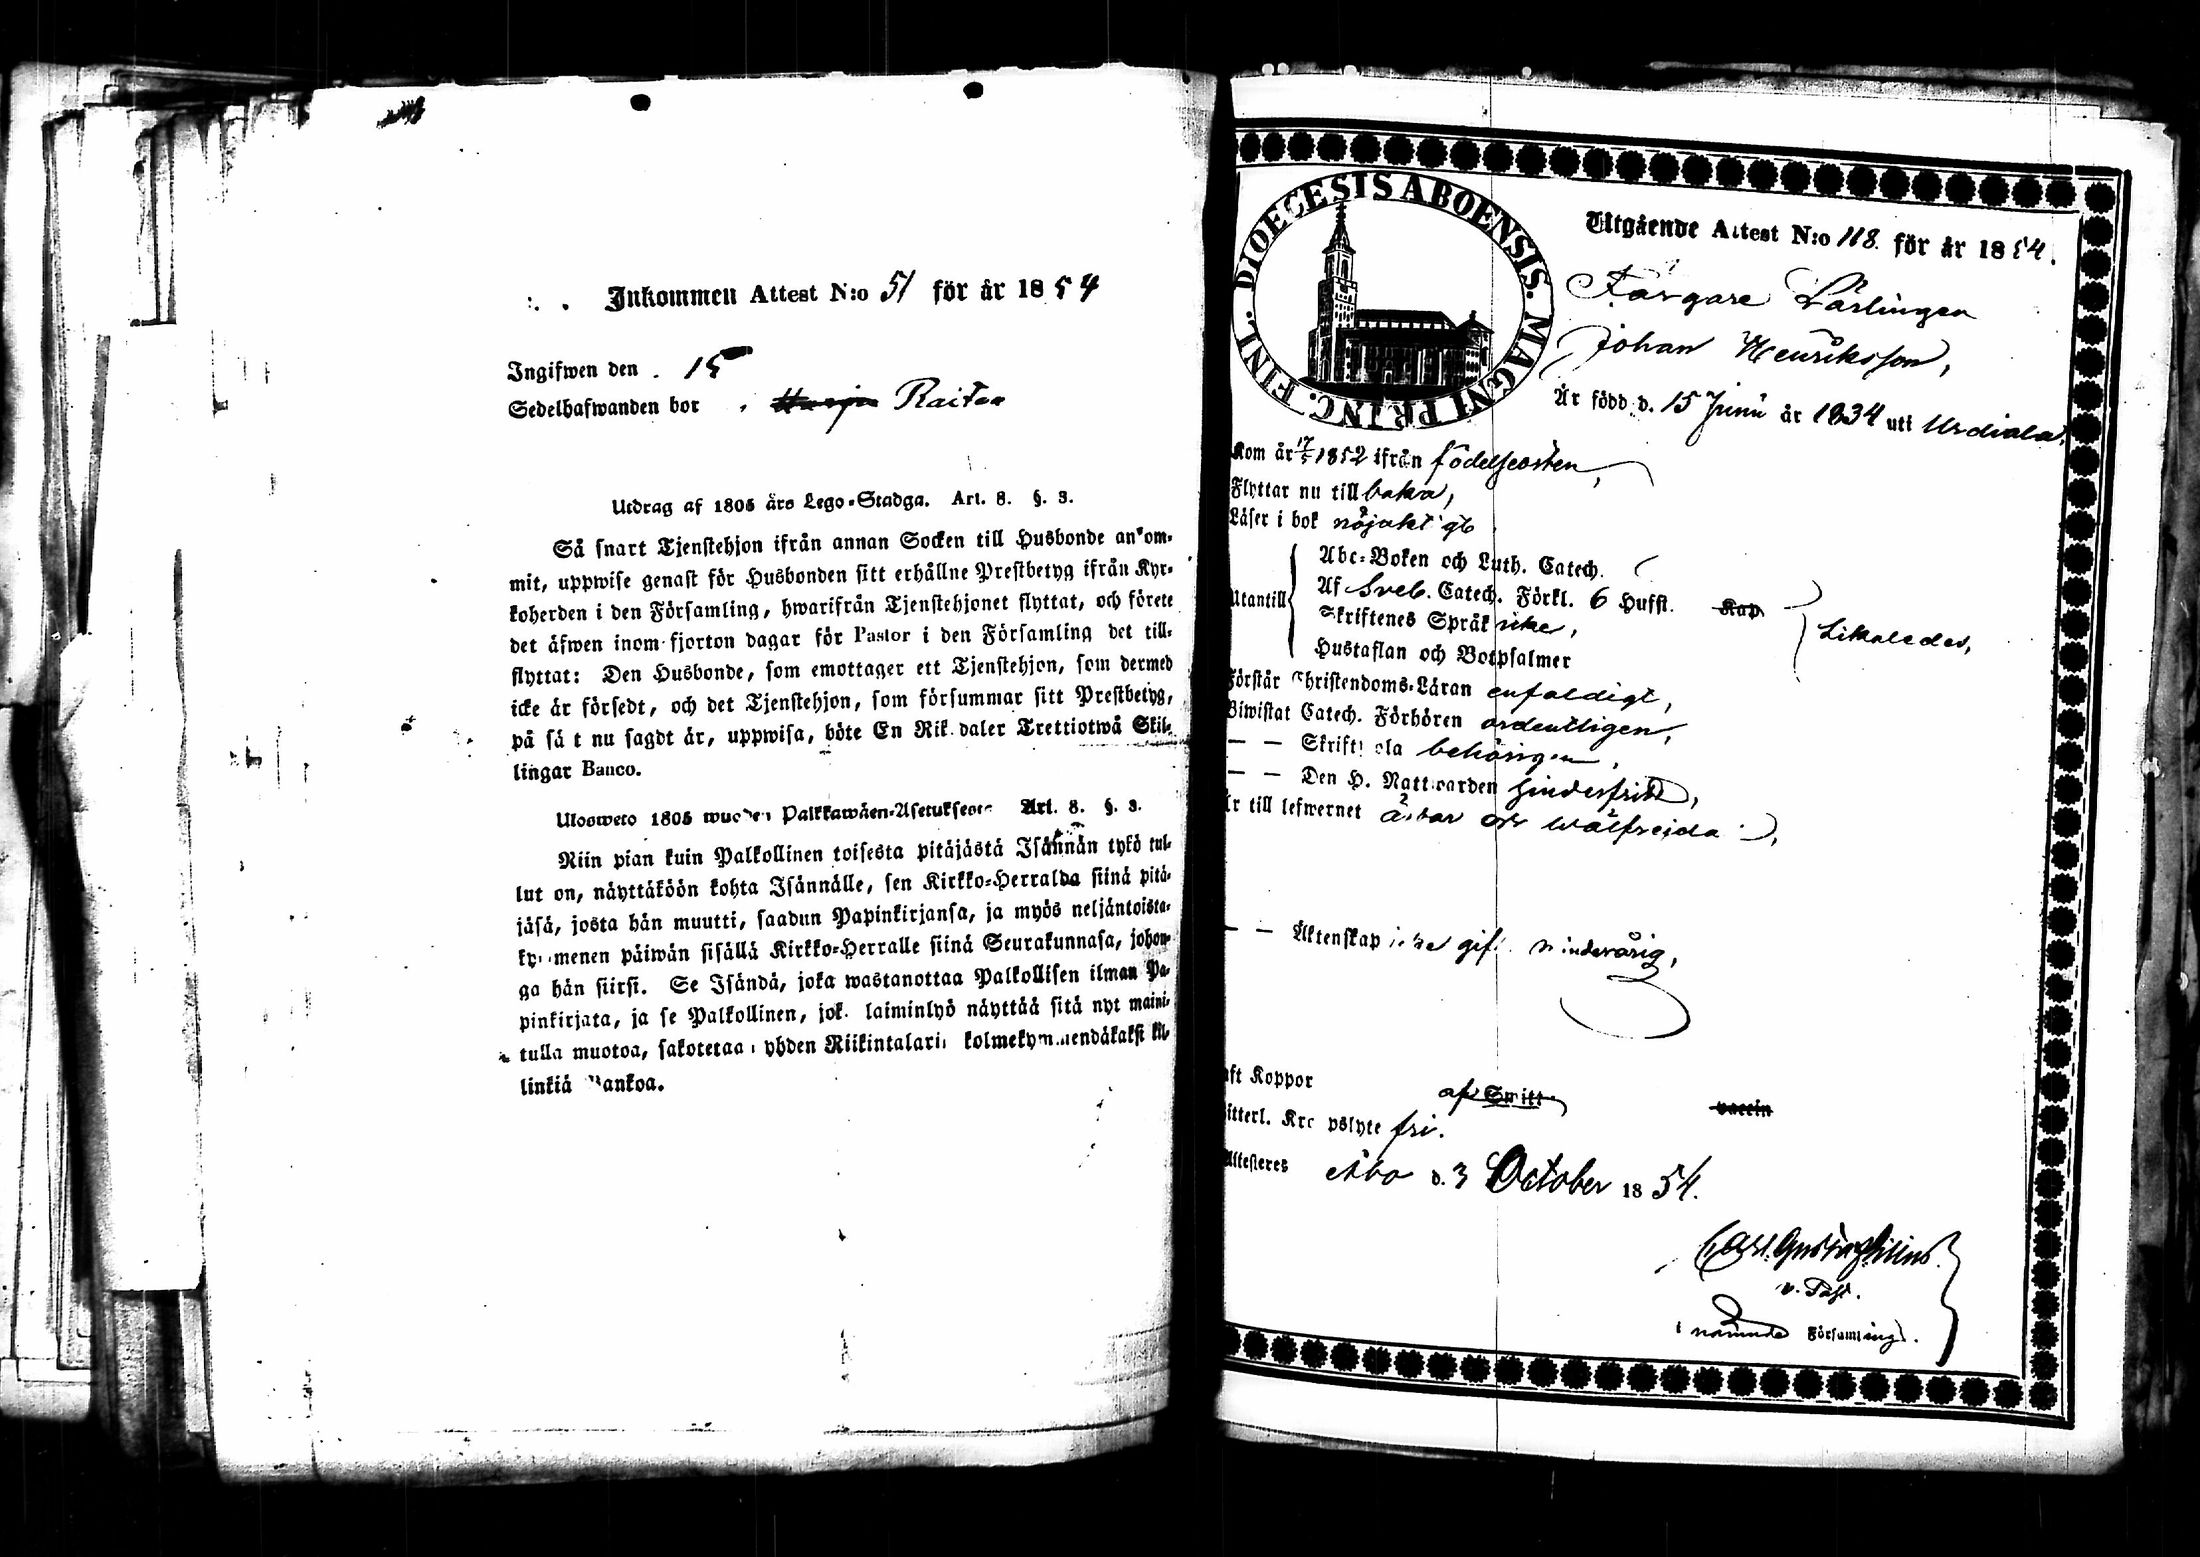 Inkommen Attest N:o 51 för år 1854
Ingifwen den 15
Sedelhafwanden bor Raitoo
Utdrag af 1805 års Lego-Stadga. Art. 8. §. 3.
Så snart Tjenstehjon ifrån annan Socken till Husbonde ankom-
mit, uppwise genast för Husbonden sitt erhållne Prestbetyg ifrån Kyr-
koherden i den Församling, hwarifrån Tjenstehjonet flyttat, och förete
det äfwen inom fjorton dagar för Pastor i den Församling det till-
flyttat: Den Husbonde, som emottager ett Tjenstehjon, som dermed
icke är försedt, och det Tjenstehjon, som försummar sitt Prestbetyg,
på sä t nu sagdt är, uppwisa, böte En Rik daler Trettiotwå Skil-
lingar Banco.
Ulosweto 1805 wuoden Palkkawäen-Asetuksesta Art. 8. §. 3.
Niin pian kuin Palkollinen toisesta pitäjästä Isännän tykö tul-
lut on, näyttäköön kohta Isännälle, sen Kirkko-Herralda siinä pitä-
jäsä, josta hän muutti, saadun Papinkirjansa, ja myös neljäntoista-
kymmenen päiwän sisällä Kirkko-Herralle siinä Seurakunnasa, johon-
ga hän siirsi. Se Isändä, joka wastanottaa Palkollisen ilman Pa-
pinkirjata, ja se Palkollinen, jok laiminlyö näyttää sitä nyt maini-
tulla muotoa, sakotetaan yhden Riikintalarin kolmekymmendäkaksi kil-
linkiä Bankoa.
DIOECESIS ABOENSIS. MAGNI PRINC. FINL.
Utgående Attest N:o 118. för år 1854.
Färgare Lärlingen
Johan Henriksson,
Är född d. 15 Junii år 1834 uti Urdiala,
Kom år 17/5 1852 ifrån födelseorten,
Flyttar nu till baka,
Läser i bok nöjaktigt
Utantill
Abc-Boken och Luth. Catech.
Af Sveb. Catech. Förkl. 6 Hufst. Kap
Skriftenes Språk icke,
Hustaflan och Botpsalmer
Likaledes,
Förstår Christendoms-Läran enfaldigt,
Biwistat Catech. Förhören ordentligen,
— — Skriftskola behörigen,
— — Den H. Nattwarden hinderfritt,
Är till lefwernet ärbar och wälfrejda
— — Äktenskap icke gift minderårig,
aft Koppor af Smitt vaccin
itterl. Kropslyte fri.
Attesteres Åbo d. 3 October 1854.
Carl Gustaf
v. Past.
i nämnde Församling.